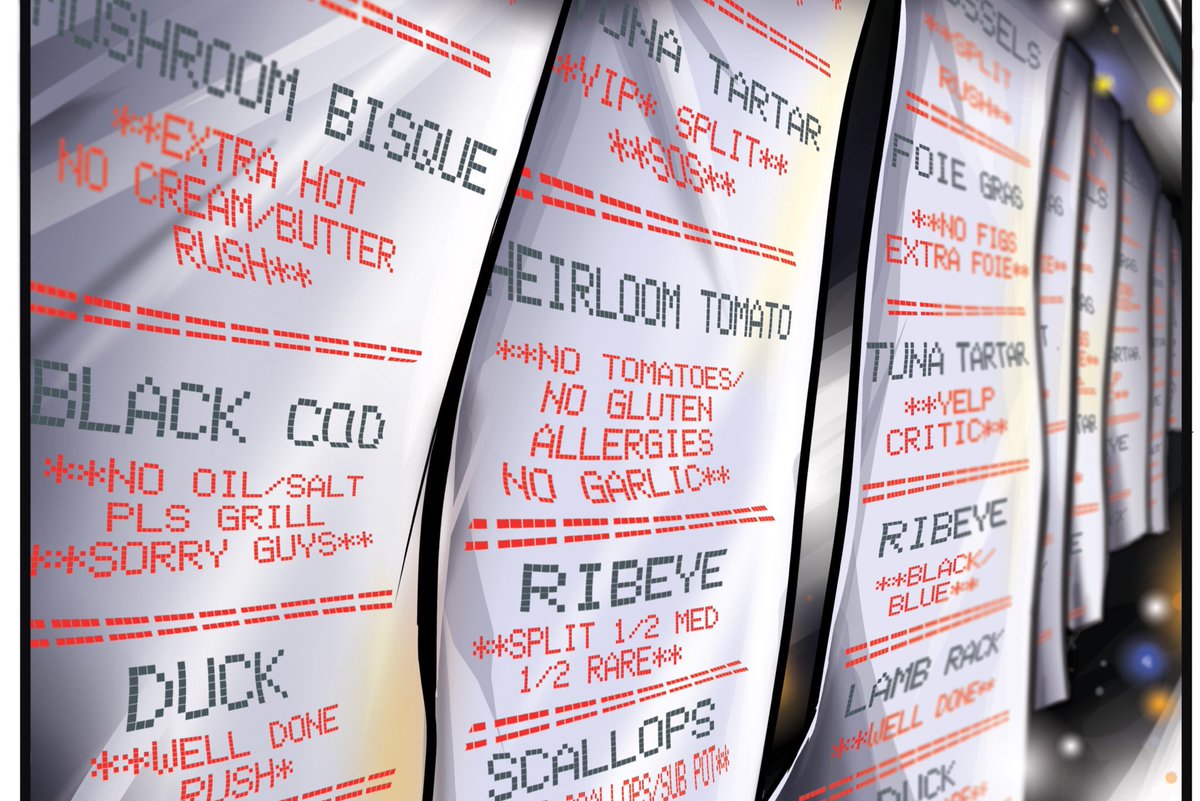 MUSHROOM BISQUE
**EXTRA HOT
NO CREAM/BUTTER
RUSH**
BLACK COD
**NO OIL/SALT
PLS GRILL
**SORRY GUYS**
DUCK
**WELL DONE
RUSH*
TUNA TARTAR
*VIP* SPLIT**
**SOS**
HEIRLOOM TOMATO
**NO TOMATOES/
NO GLUTEN
ALLERGIES
NO GARLIC**
RIBEYE
**SPLIT 1/2 MED
1/2 RARE**
SCALLOPS
SCALLOPS/SUB POT**
USSELS
**SPLIT
RUSH**
FOIE GRAS
**NO FIGS
EXTRA FOIE**
TUNA TARTAR
**YELP
CRITIC**
RIBEYE
**BLACK/
BLUE**
LAMB RACK
**WELL DONE**
DUCK